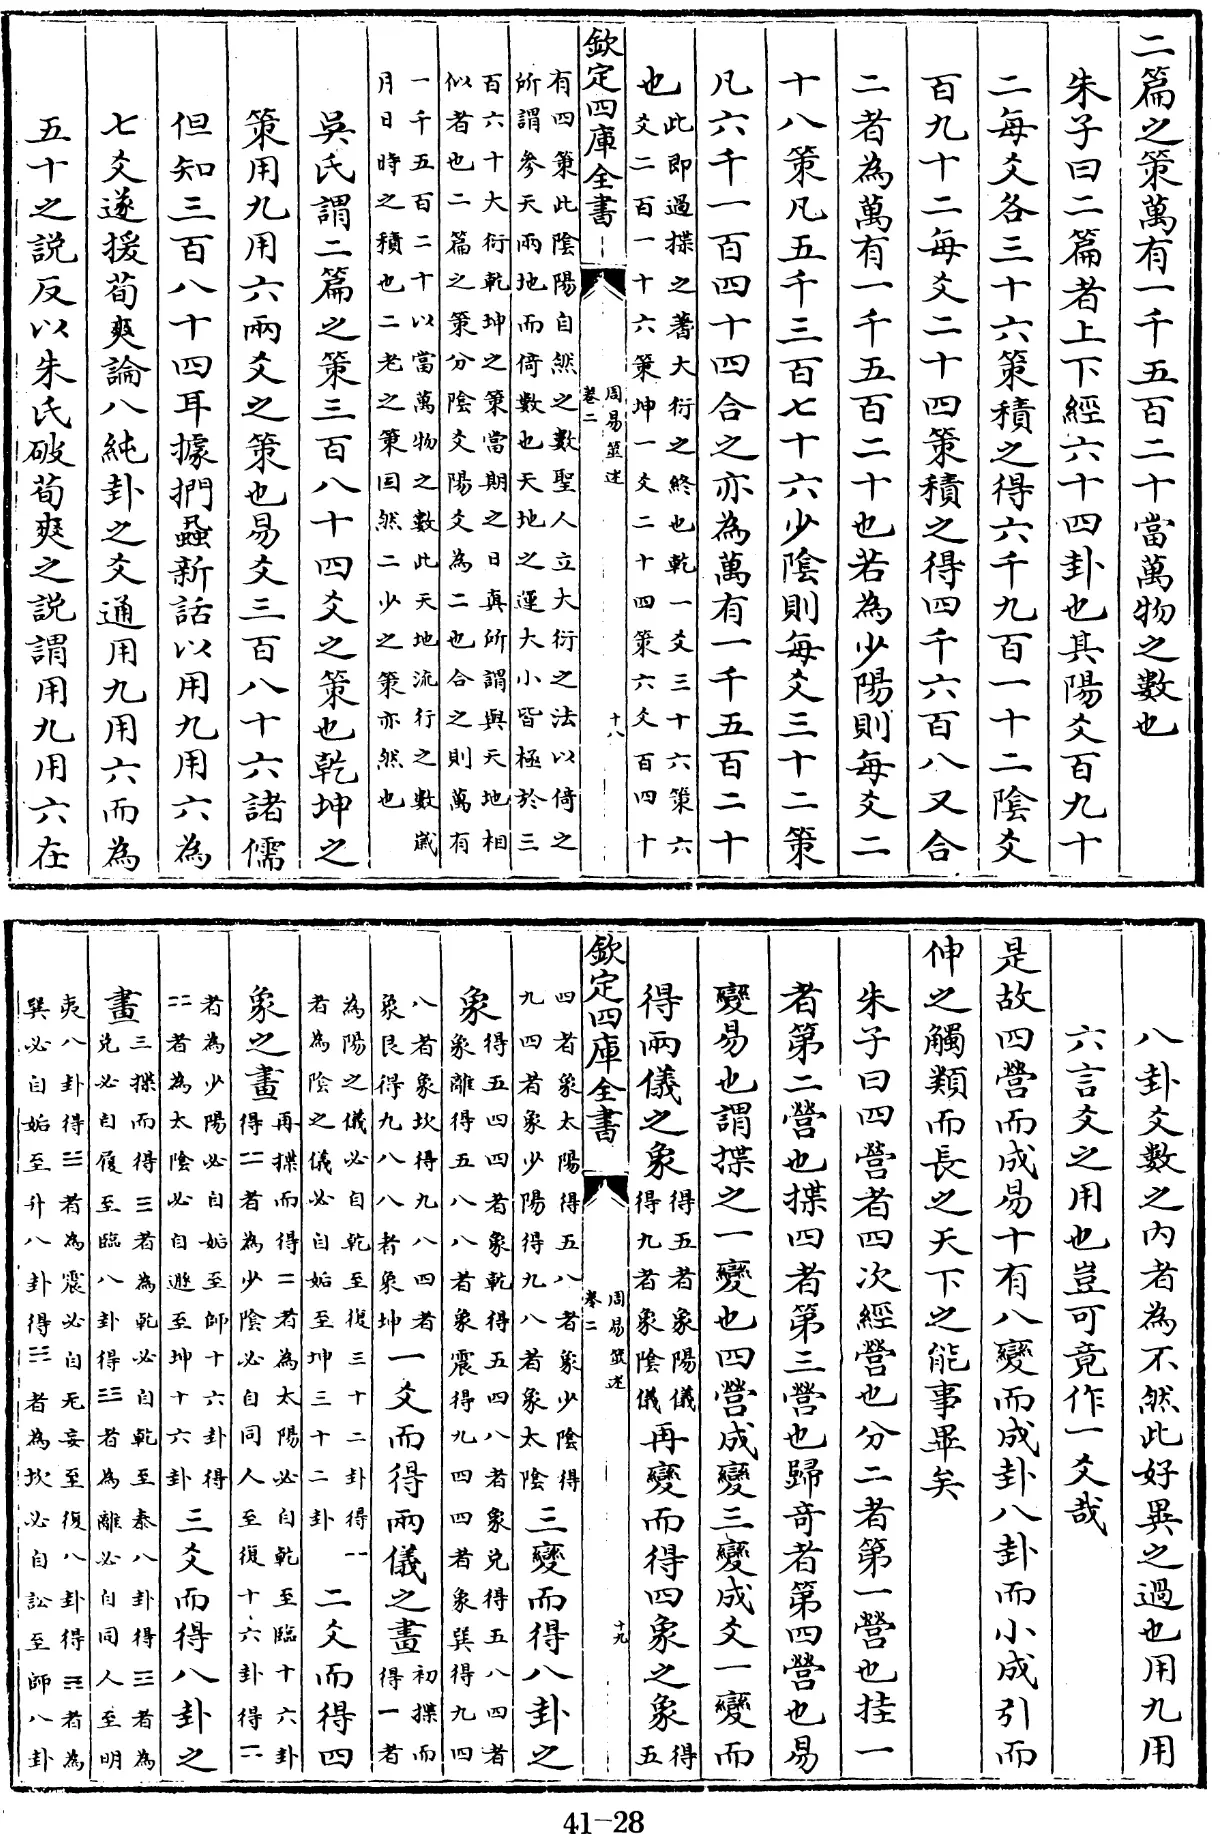 二篇之策萬有一千五百二十當萬物之數也
朱子曰二篇者上下經六十四卦也其陽爻百九十
二每爻各三十六策積之得六千九百一十二陰爻
百九十二每爻二十四策積之得四千六百八又合
二者為萬有一千五百二十也若為少陽則每爻二
十八策凡五千三百七十六少陰則每爻三十二策
凡六千一百四十四合之亦為萬有一千五百二十
也
此即過揲之蓍大衍之終也乾一爻三十六策六
爻二百一十六策坤一爻二十四策六爻百四十
欽定四庫全書
周易筮述
卷二
十八
有四策此陰陽自然之數聖人立大衍之法以倚之
所謂參天兩地而倚數也天地之運大小皆極於三
百六十大衍乾坤之策當期之日真所謂與天地相
似者也二篇之策分陰爻陽爻為二也合之則萬有
一千五百二十以當萬物之數此天地流行之數歲
月日時之積也二老之策固然二少之策亦然也
吳氏謂二篇之策三百八十四爻之策也乾坤之
策用九用六兩爻之策也易爻三百八十六諸儒
但知三百八十四耳據捫蝨新話以用九用六為
七爻遂援荀爽論八純卦之爻通用九用六而為
五十之説反以朱氏破荀爽之説謂用九用六在
八卦爻數之内者為不然此好異之過也用九用
六言爻之用也豈可竟作一爻哉
是故四營而成易十有八變而成卦八卦而小成引而
伸之觸類而長之天下之能事畢矣
朱子曰四營者四次經營也分二者第一營也挂一
者第二營也揲四者第三營也歸奇者第四營也易
變易也謂揲之一變也四營成變三變成爻一變而
得兩儀之象
得五者象陽儀
得九者象陰儀
再變而得四象之象
得
五
欽定四庫全書
周易筮述
卷二
十九
四者象太陽得五八者象少陰得
九四者象少陽得九八者象太陰
三變而得八卦之
象
得五四四者象乾得五四八者象兌得五八四者
象離得五八八者象震得九四四者象巽得九四
八者象坎得九八四者
象艮得九八八者象坤
一爻而得兩儀之畫
初揲而
得一者
為陽之儀必自乾至復三十二卦得⚋
者為陰之儀必自姤至坤三十二卦
二爻而得四
象之畫
再揲而得⚌者為太陽必自乾至臨十六卦
得⚍者為少陰必自同人至復十六卦得⚎
者為少陽必自姤至師十六卦得
⚏者為太陰必自遯至坤十六卦
三爻而得八卦之
畫
三揲而得☰者為乾必自乾至泰八卦得☱者為
兌必自履至臨八卦得☲者為離必自同人至明
夷八卦得☳者為震必自无妄至復八卦得☴者為
巽必自姤至升八卦得☵者為坎必自訟至師八卦
41-28